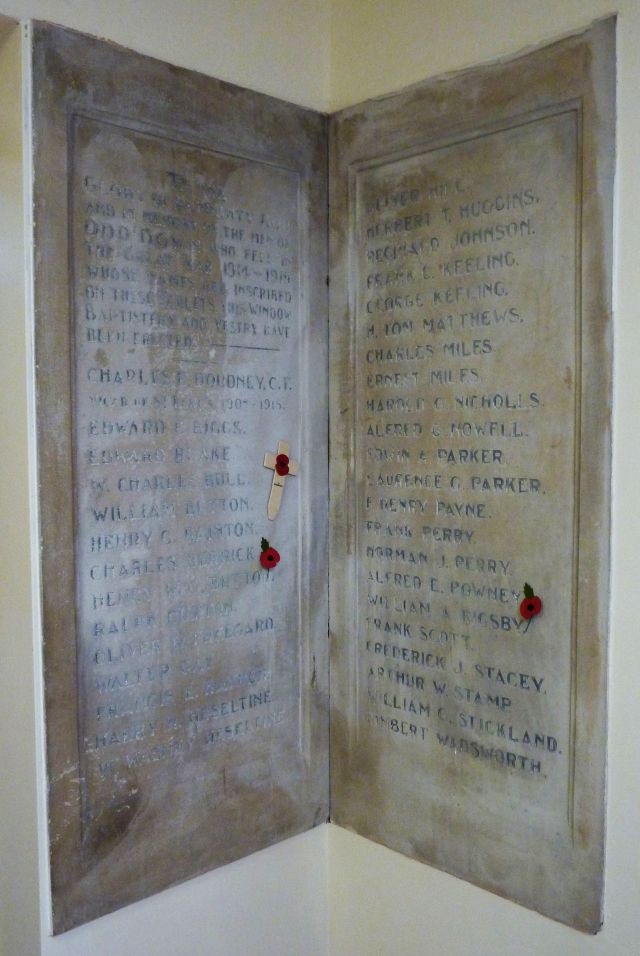 TO THE
GLORY OF GOD
AND IN MEMORY OF THE MEN OF
ODD DOWN WHO FELL IN
THE GREAT WAR 1914-1919
WHOSE NAMES ARE INSCRIBED
ON THESE TABLETS THIS WINDOW
BAPTISTERY AND VESTRY HAVE
BEEN ERECTED.
CHARLES E. DOUDNEY, C.F.
VICAR OF 1908-1915.
EDWARD E. BIGGS.
EDWARD BLAKE.
W. CHARLES BULL.
WILLIAM
HENRY G.
CHARLES
HENRY
RALPH
OLIVER
WALTER
FRANCIS E.
HARRY HESELTINE
W. HESELTINE
OLIVER HILL.
HERBERT T. HUGGINS.
REGINALD JOHNSON.
FRANK E. KEELING.
GEORGE KEELING.
H. TOM MATTHEWS.
CHARLES MILES
ERNEST MILES.
HAROLD G. NICHOLLS.
ALFRED G. NOWELL.
EDWIN A. PARKER.
LAURENCE G. PARKER.
F. HENRY PAYNE.
FRANK PERRY.
NORMAN J. PERRY.
ALFRED E. POWNEY
WILLIAM A. RIGSBY
FRANK SCOTT.
FREDERICK J. STACEY.
ARTHUR W. STAMP.
WILLIAM C. STICKLAND.
WADSWORTH.